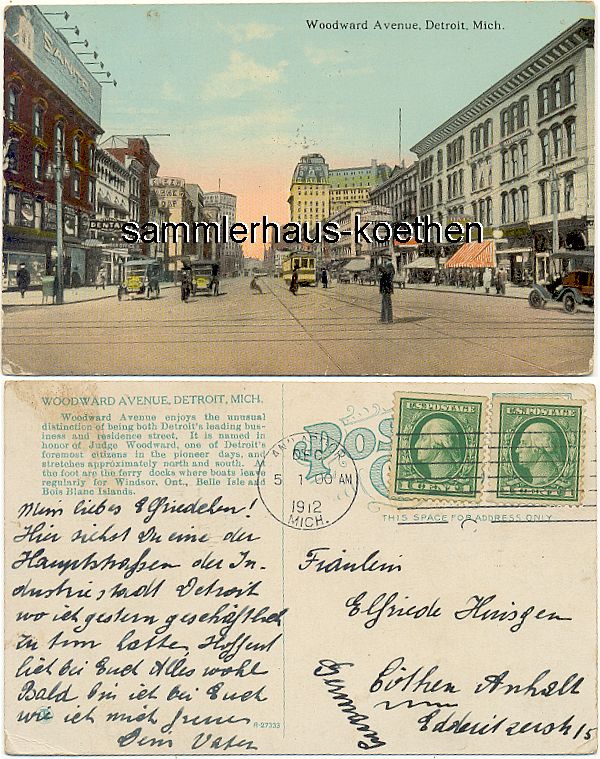 Woodward Avenue, Detroit, Mich.
SAN TEL
DENT
sammlerhaus-koethen
WOODWARD AVENUE, DETROIT, MICH.
Woodward Avenue enjoys the unusual
distinction of being both Detroit's leading bus-
iness and residence street. It is named in
honor of Judge Woodward, one of Detroit's
foremost citizens in the pioneer days, and
stretches approximately north and south. At
the foot are the ferry docks where boats leave
regularly for Windsor, Ont., Belle Isle and
Bois Blanc Islands.
ANN ARBOR
DEC
5 1 00 AM
1912
MICH.
U.S. POSTAGE
1 CENT 1
U.S. POSTAGE
1 CENT 1
THIS SPACE FOR ADDRESS ONLY
Mein liebes Elfriedchen!
Hier siehst Du eine der
Hauptstraßen der In-
dustriestadt Detroit
wo ich gestern geschäftlich
zu tun hatte. Hoffent
lich bei Euch Alles wohl
Bald bin ich bei Euch
wie ich mich freue
Dein Vater
R-27333
Fräulein
Elfriede Huisgen
Cöthen Anhalt
Edderitzerstr 15
Germany